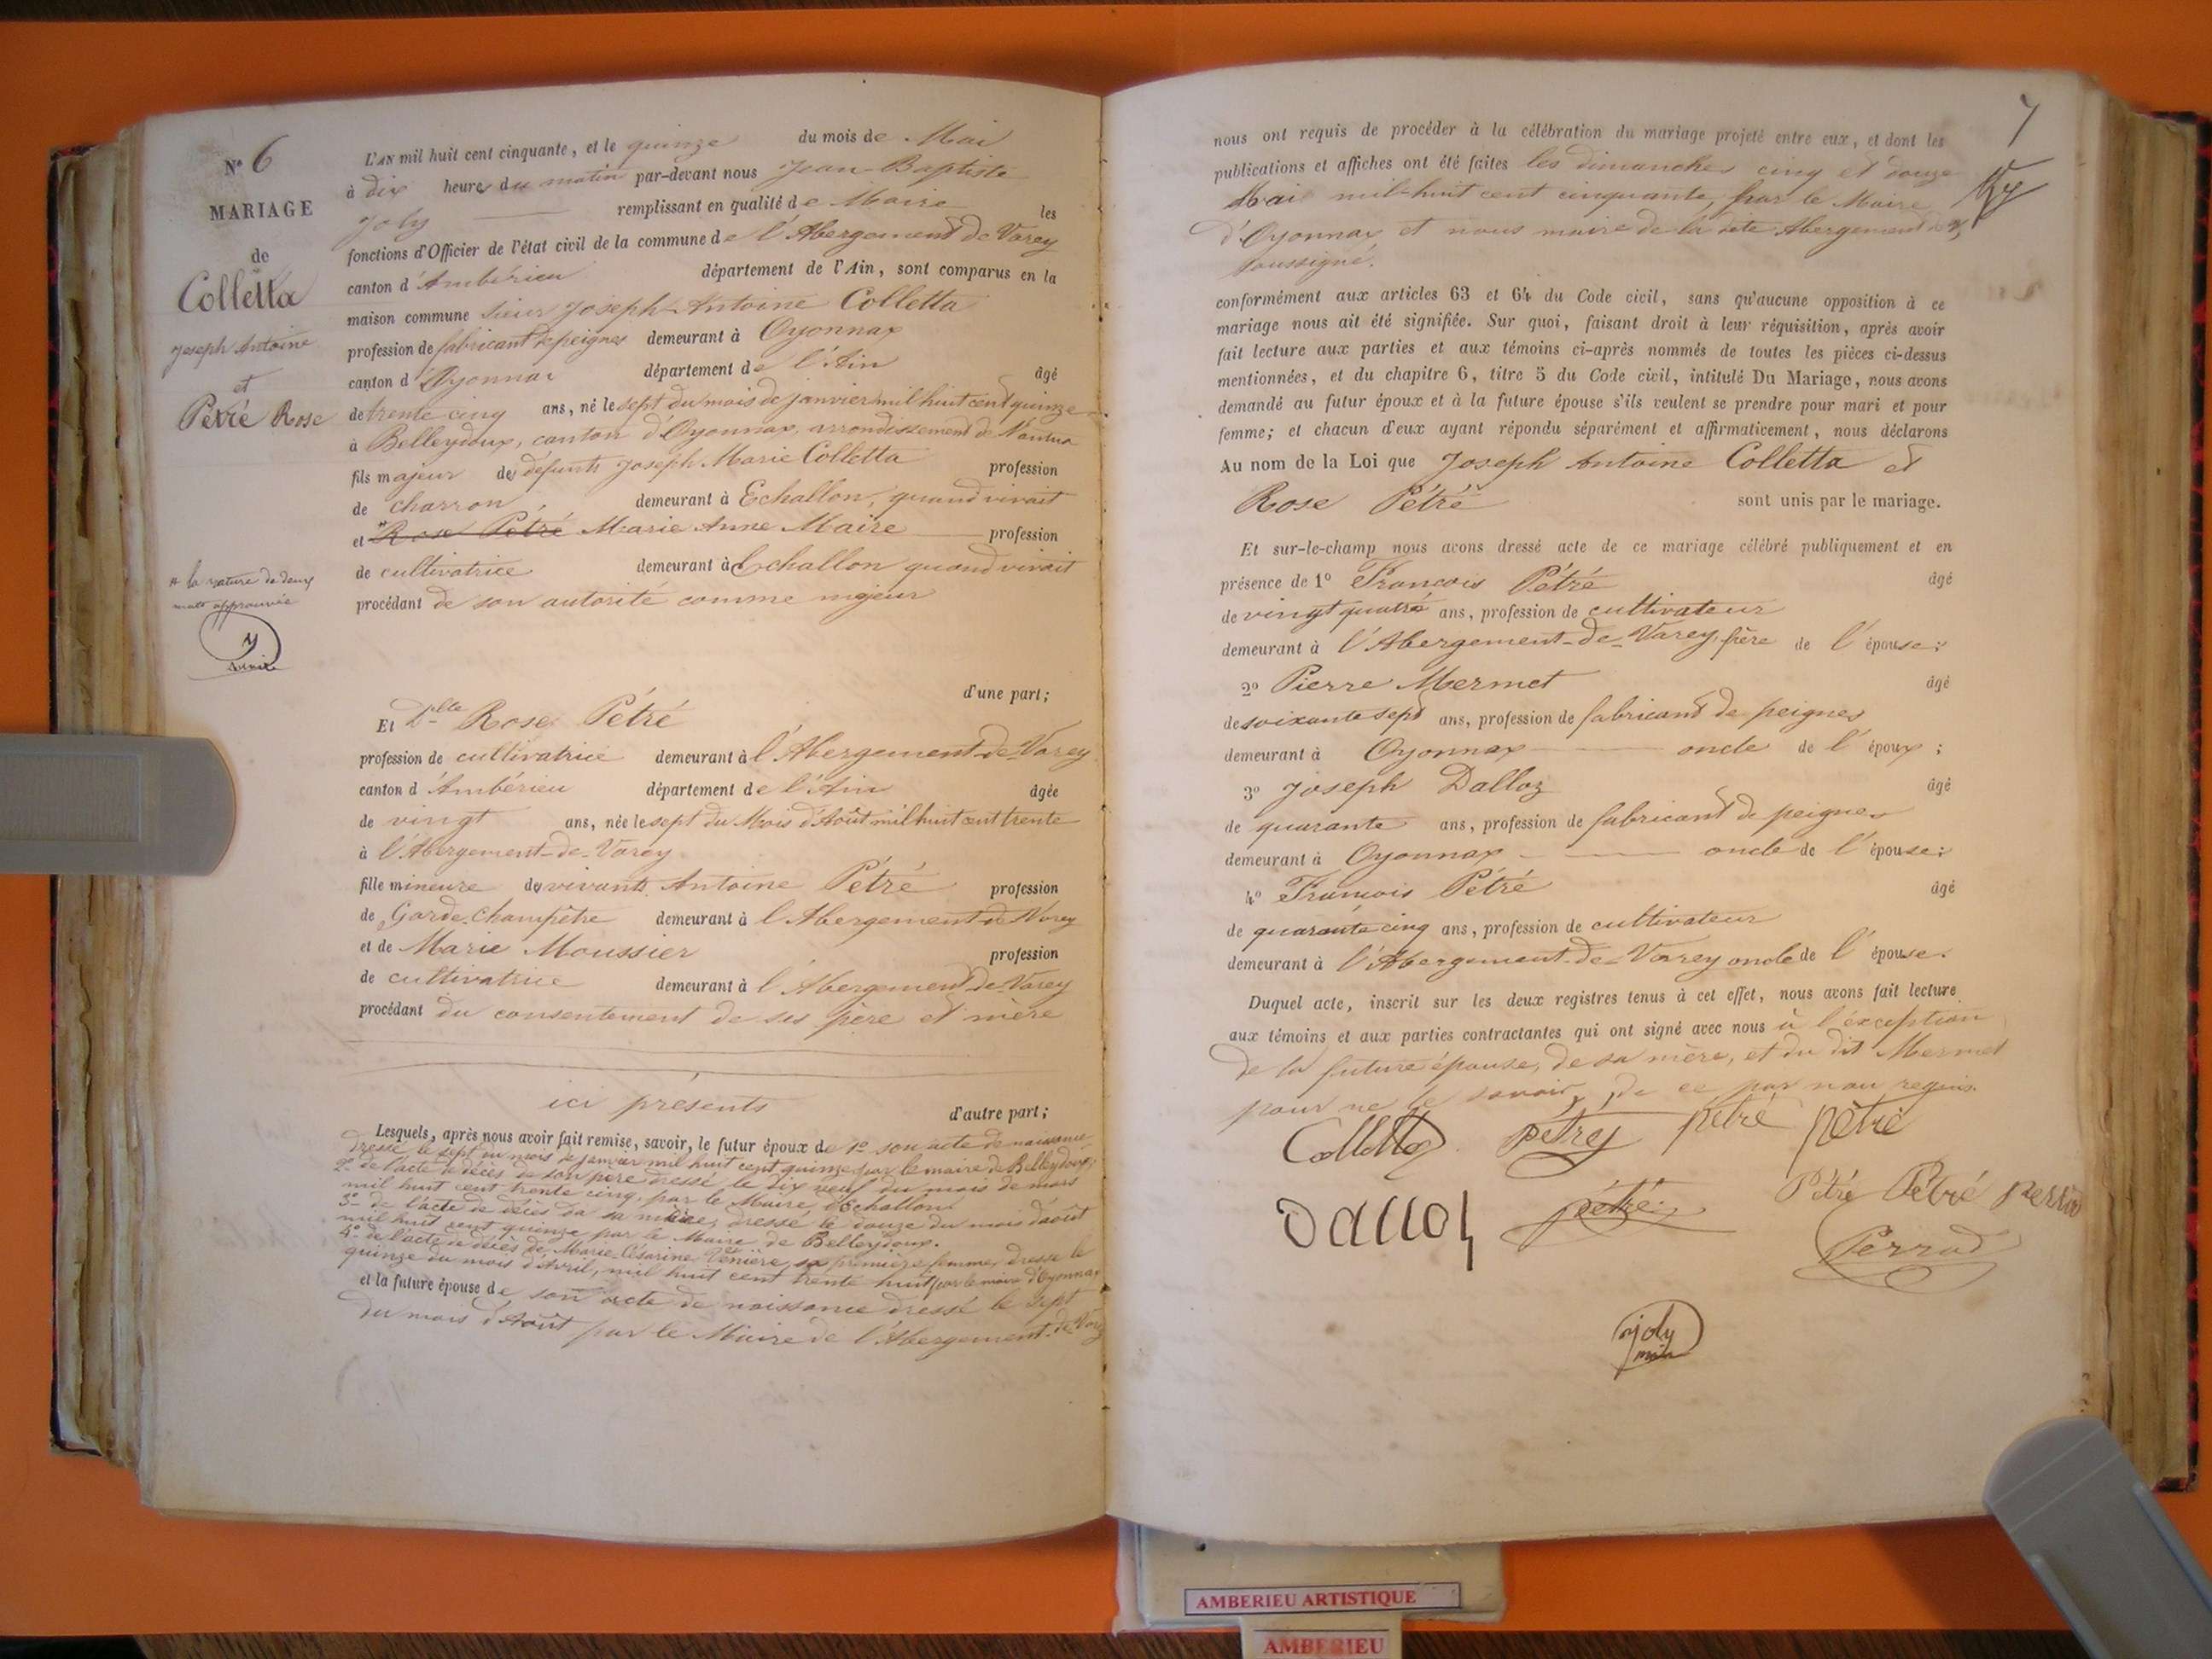 N° 6
MARIAGE
de
Colletta
Joseph Antoine
et
Pétré Rose
# la rature de deux
mots approuvée
L'AN mil huit cent cinquante, et le quinze du mois de Mai
à dix heures du matin par-devant nous Jean-Baptiste
Joly remplissant en qualité de Maire les
fonctions d'Officier de l'état civil de la commune de l'Abergement de Varey
canton d'Ambérieu département de l'Ain, sont comparus en la
maison commune Sieur Joseph-Antoine Colletta
profession de fabricant de peignes demeurant à Oyonnax
canton d'Oyonnax département de l'Ain âgé
de trente cinq ans, né le sept du mois de janvier mil huit cent quinze
à Belleydoux, canton d'Oyonnax, arrondissement de Nantua
fils majeur des défunts Joseph Marie Colletta profession
de charron demeurant à Echallon, quand vivait
et Rose Pétré Marie Anne Maire profession
de cultivatrice demeurant à Echallon quand vivait
procédant de son autorité comme majeur
d'une part;
Et Dlle Rose Pétré
profession de cultivatrice demeurant à l'Abergement-de-Varey
canton d'Ambérieu département de l'Ain âgée
de vingt ans, née le sept du Mois d'Août mil huit cent trente
à l'Abergement-de-Varey
fille mineure des vivants Antoine Pétré profession
de Garde-Champêtre demeurant à l'Abergement de Varey
et de Marie Moussier profession
de cultivatrice demeurant à l'Abergement-de-Varey
procédant du consentement de ses père et mère
ici présents d'autre part;
Lesquels, après nous avoir fait remise, savoir, le futur époux de 1° son acte de naissance
dressé le sept du mois de janvier mil huit cent quinze par le maire de Belleydoux,
2° de l'acte de décès de son père dressé le dix neuf du mois de mars
mil huit cent trente cinq, par le Maire d'Echallon
3° de l'acte de décès de sa mère, dressé le douze du mois d'août
mil huit cent quinze par le Maire de Belleydoux.
4° de l'acte de décès de Marie-Césarine Venière, sa première femme, dressé le
quinze du mois d'Avril, mil huit cent trente huit par le maire d'Oyonnax
et la future épouse de son acte de naissance dressé le sept
du mois d'Août par le Maire de l'Abergement-de-Varey
7
nous ont requis de procéder à la célébration du mariage projeté entre eux, et dont les
publications et affiches ont été faites les dimanches cinq et douze
Mai mil-huit cent cinquante, par le Maire
d'Oyonnax et nous maire de la dite Abergement
soussigné.
conformément aux articles 63 et 64 du Code civil, sans qu'aucune opposition à ce
mariage nous ait été signifiée. Sur quoi, faisant droit à leur réquisition, après avoir
fait lecture aux parties et aux témoins ci-après nommés de toutes les pièces ci-dessus
mentionnées, et du chapitre 6, titre 5 du Code civil, intitulé Du Mariage, nous avons
demandé au futur époux et à la future épouse s'ils veulent se prendre pour mari et pour
femme; et chacun d'eux ayant répondu séparément et affirmativement, nous déclarons
Au nom de la Loi que Joseph Antoine Colletta et
Rose Pétré sont unis par le mariage.
Et sur-le-champ nous avons dressé acte de ce mariage célébré publiquement et en
présence de 1° François Pétré âgé
de vingt quatre ans, profession de cultivateur
demeurant à l'Abergement-de-Varey, frère de l'épouse;
2° Pierre Mermet âgé
de soixante sept ans, profession de fabricant de peignes
demeurant à Oyonnax oncle de l'époux;
3° Joseph Dalloz âgé
de quarante ans, profession de fabricant de peignes
demeurant à Oyonnax oncle de l'épouse;
4° François Pétré âgé
de quarante cinq ans, profession de cultivateur
demeurant à l'Abergement-de-Varey oncle de l'épouse.
Duquel acte, inscrit sur les deux registres tenus à cet effet, nous avons fait lecture
aux témoins et aux parties contractantes qui ont signé avec nous à l'exception
de la future épouse, de sa mère, et du dit Mermet
pour ne le savoir, de ce par nous requis.
Colletta Pétrey pétré pétré
Dalloz pétré Pétré Pétré
Perrod
joly
AMBERIEU ARTISTIQUE
AMBERIEU